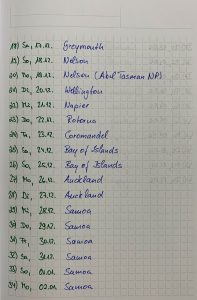 17) Sa, 17.12. Greymouth
18) So, 18.12. Nelson
19) Mo, 19.12. Nelson (Abel Tasman NP)
20) Di, 20.12. Wellington
21) Mi, 21.12. Napier
22) Do, 22.12. Rotorua
23) Fr, 23.12. Coromandel
24) Sa, 24.12. Bay of Islands
25) So, 25.12. Bay of Islands
26) Mo, 26.12. Auckland
27) Di, 27.12. Auckland
28) Mi, 28.12. Samoa
29) Do, 29.12. Samoa
30) Fr, 30.12. Samoa
Sa, 31.12. Samoa
So, 01.01. Samoa
Mo, 02.01. Samoa